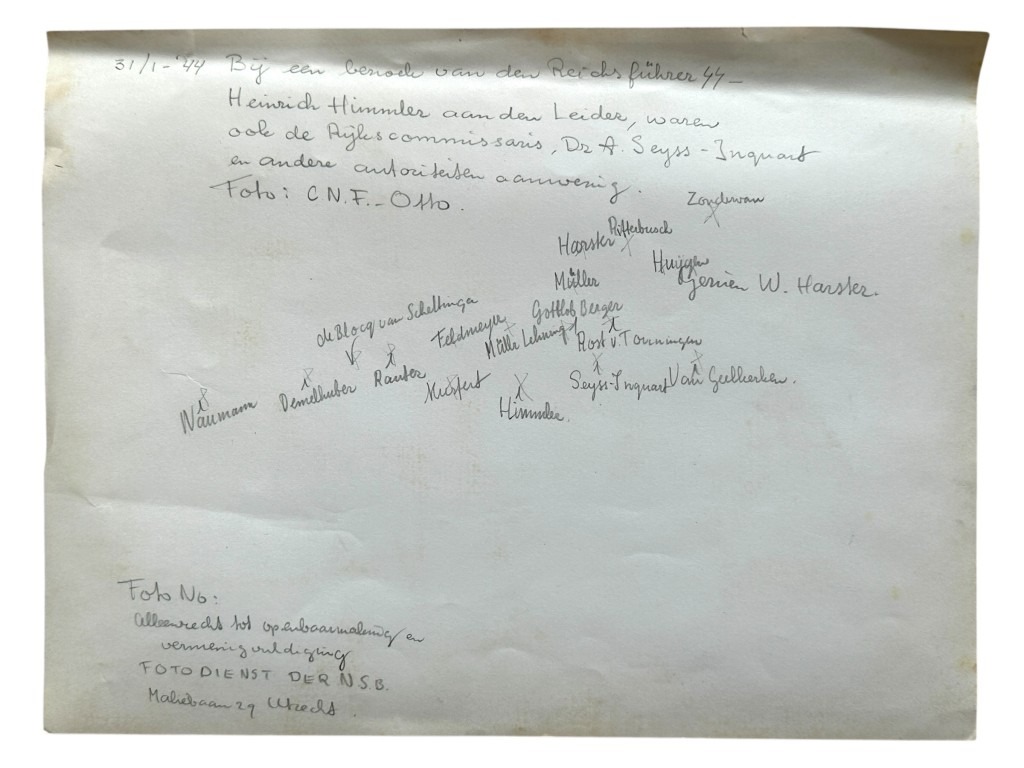 31/1-'44 Bij een bezoek van den Reichsführer SS-
Heinrich Himmler aan den Leider, waren
ook de Rijkscommissaris, Dr A. Seyss-Inquart
en andere autoriteiten aanwezig.
Foto: C.N.F.-Otto.
Zondervan
Ritterbusch
Harster
Huijgen
Müller
Jensen W. Harster.
de Blocq van Scheltinga
Gottlob Berger
Feldmeyer
Müller Lehning
Rost v. Tonningen
Rauter
Demelhuber
Seyss-Inquart
Van Geelkerken.
Naumann
Himmler.
Foto No:
Alleenrecht tot openbaarmaking en
vermenigvuldiging
FOTODIENST DER N.S.B.
Maliebaan 29 Utrecht.